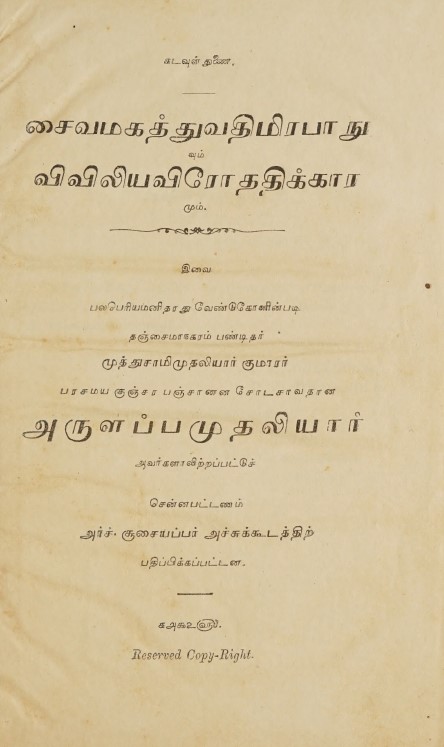 கடவுள் துணை.
சைவமகத்துவதிமிரபாநு
வும்
விவிலியவிரோததிக்கார
மும்.
இவை
பலபெரியமனிதரது வேண்டுகோளின்படி
தஞ்சைமாநகரம் பண்டிதர்
முத்துசாமிமுதலியார் குமாரர்
பரசமய குஞ்சர பஞ்சானன சோடசாவதான
அருளப்பமுதலியார்
அவர்களாலியற்றப்பட்டுச்
சென்னபட்டணம்
அர்ச். சூசையப்பர் அச்சுக்கூடத்திற்
பதிப்பிக்கப்பட்டன.
Reserved Copy-Right.